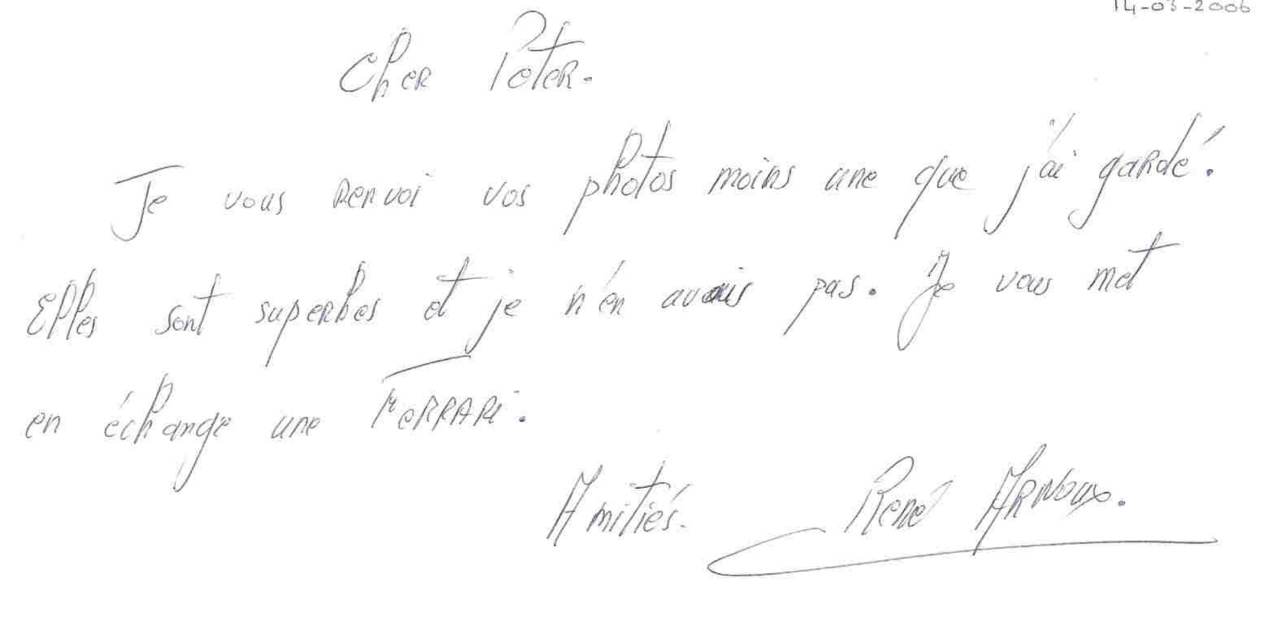 14-03-2006
Cher Peter.
Je vous renvoi vos photos moins une que j'ai gardé.
Elles sont superbes et je n'en avais pas. Je vous met
en échange une FERRARI.
Amitiés. René ARNOUX.